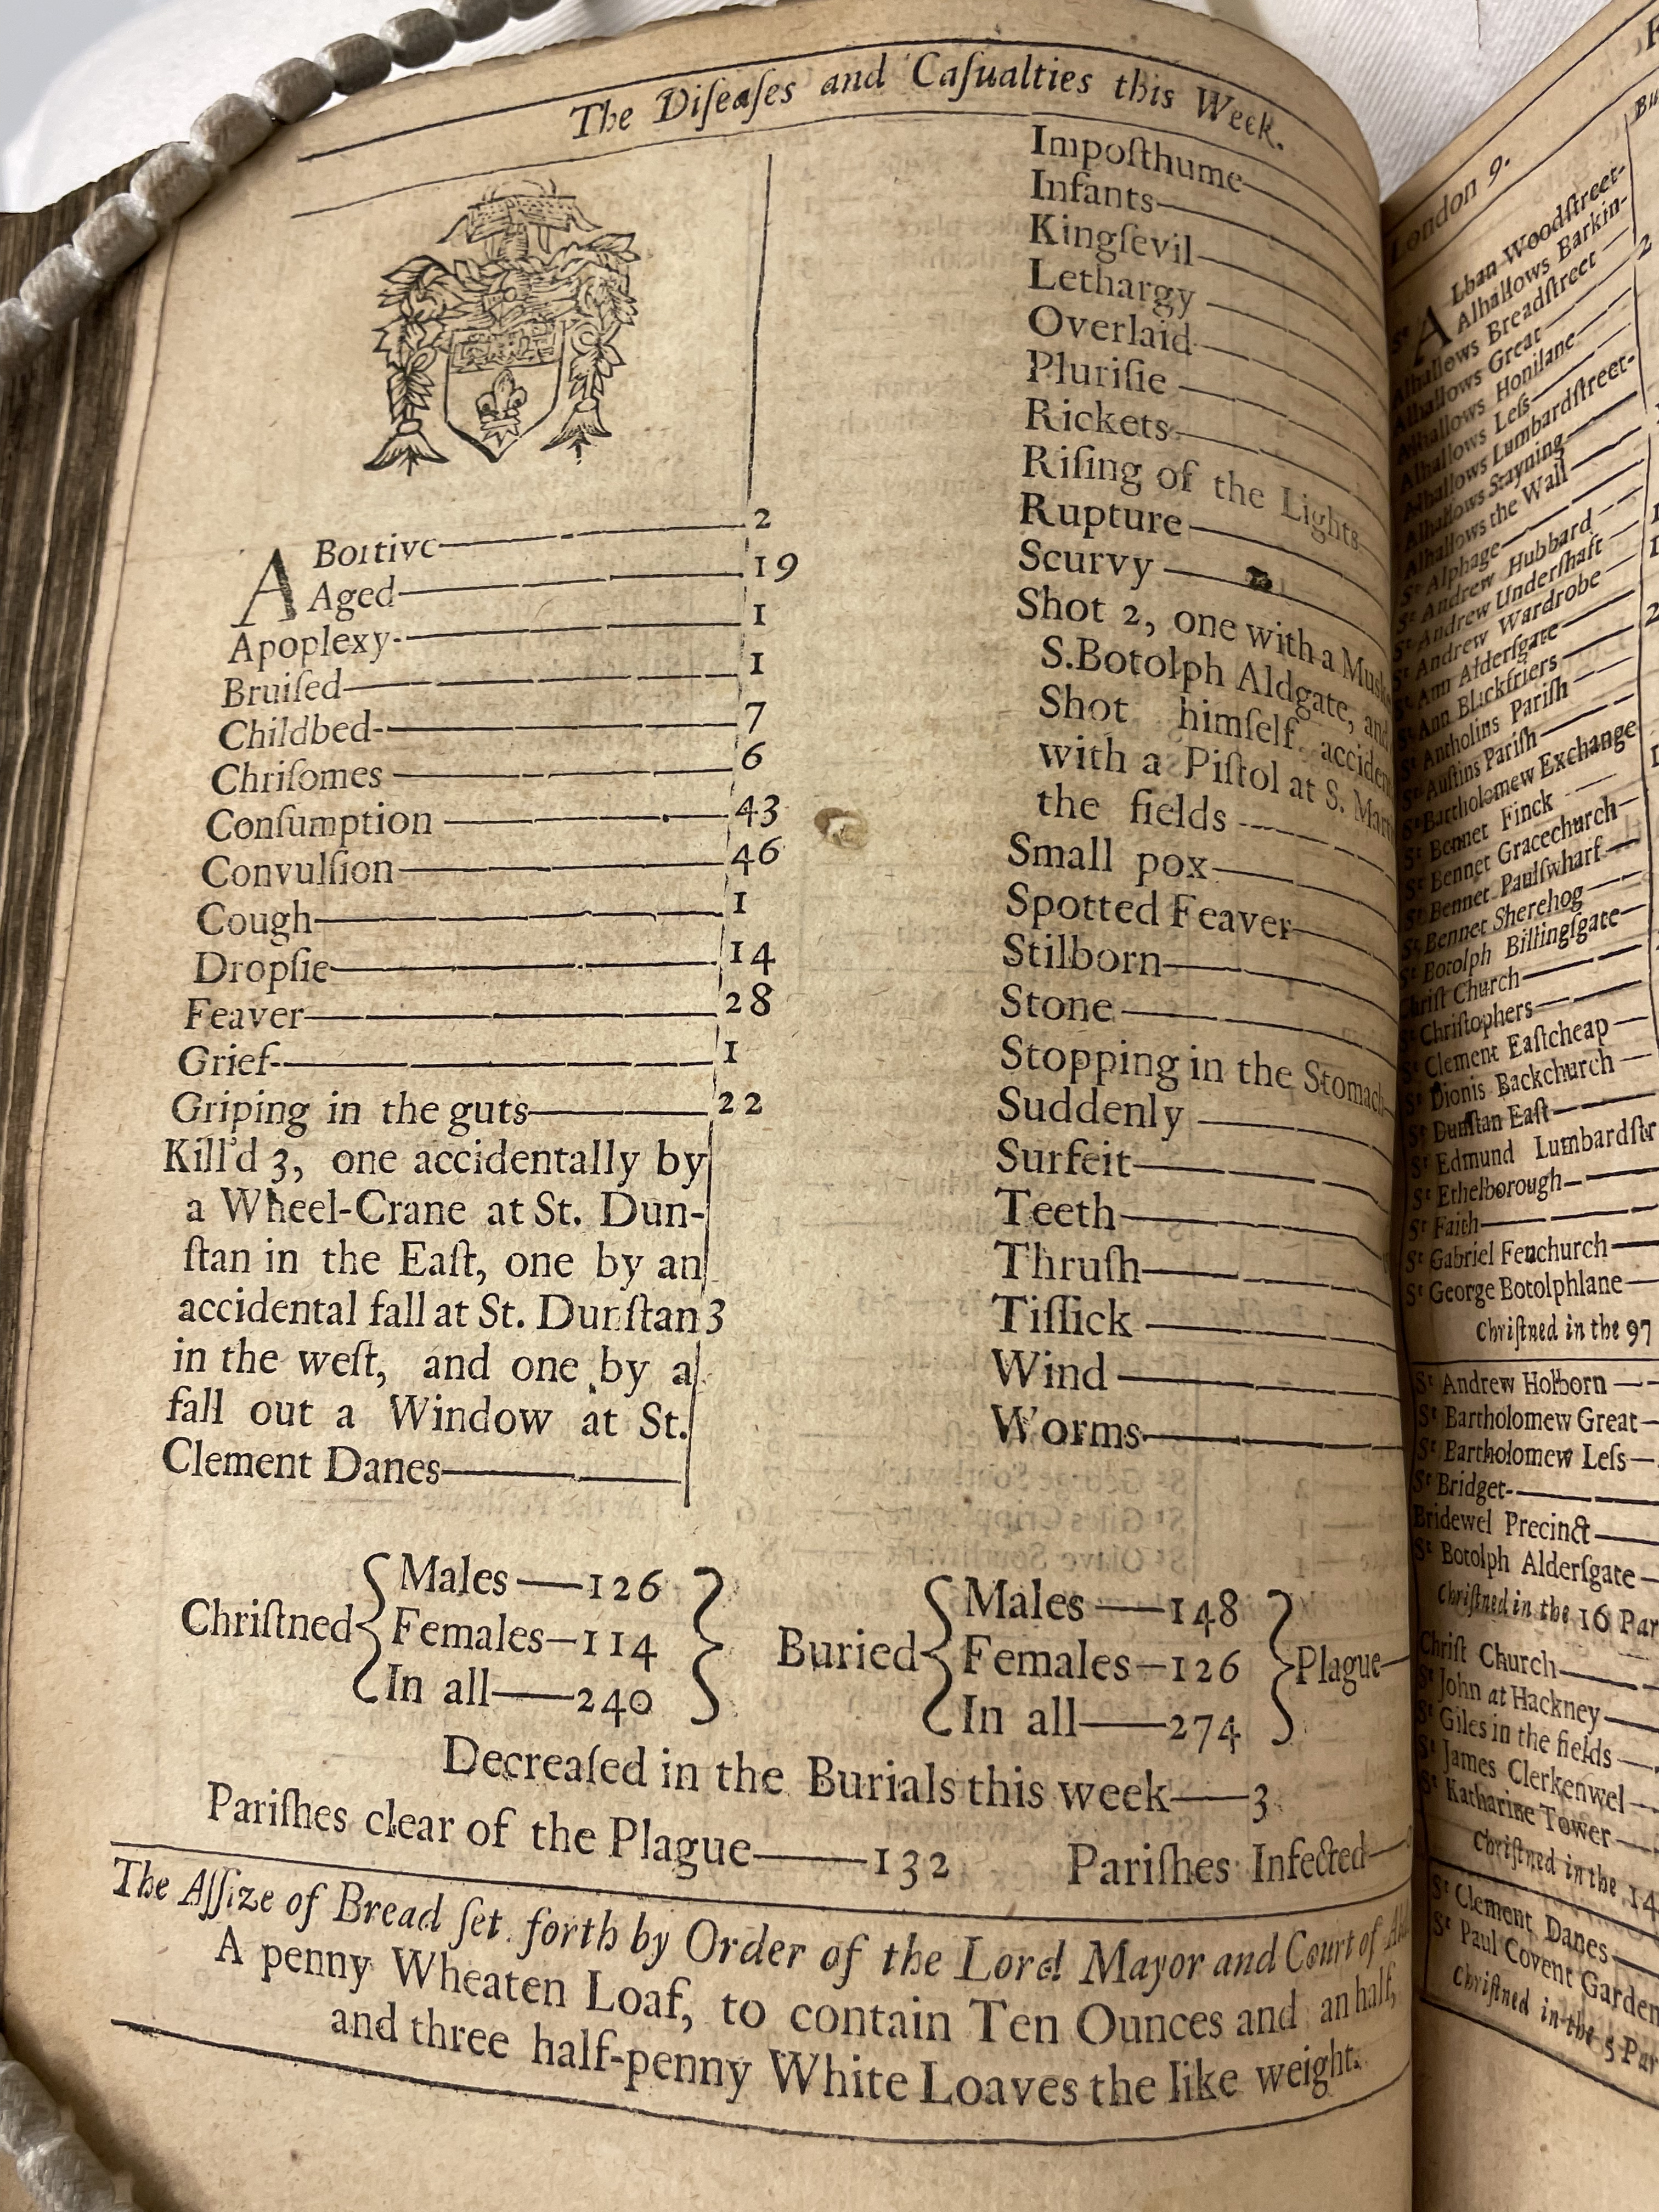 The Diſeaſes and Caſualties this Week.
ABortive 2
Aged 19
Apoplexy 1
Bruiſed 1
Childbed 7
Chriſomes 6
Conſumption 43
Convulſion 46
Cough 1
Dropſie 14
Feaver 28
Grief 1
Griping in the guts 22
Kill'd 3, one accidentally by
a Wheel-Crane at St. Dun-
ſtan in the Eaſt, one by an
accidental fall at St. Dunſtan 3
in the weſt, and one by a
fall out a Window at St.
Clement Danes
Impoſthume
Infants
Kingſevil
Lethargy
Overlaid
Pluriſie
Rickets
Riſing of the Lights
Rupture
Scurvy
Shot 2, one with a
S. Botolph Aldgate, and
Shot himſelf
with a Piſtol at S.
the fields
Small pox
Spotted Feaver
Stilborn
Stone
Stopping in the Stomach
Suddenly
Surfeit
Teeth
Thruſh
Tiſſick
Wind
Worms
Chriſtned
Males—126
Females—114
In all—240
Buried
Males—148
Females—126
In all—274
Plague
Decreaſed in the Burials this week—3
Pariſhes clear of the Plague—132 Pariſhes Infected
The Aſſize of Bread ſet forth by Order of the Lord Mayor and Court of
A penny Wheaten Loaf, to contain Ten Ounces and an half,
and three half-penny White Loaves the like weight.
London 9.
St ALban Woodſtreet
Alhallows Barkin
Alhallows Breadſtreet 2
Alhallows Great
Alhallows Honilane
Alhallows Leſs
Alhallows Lumbardſtreet
Alhallows Stayning
Alhallows the Wall
St Alphage
St Andrew Hubbard
St Andrew Underſhaft
St Andrew Wardrobe
St Ann Alderſgate
St Ann Blackfriers
St Antholins Pariſh
St Auſtins Pariſh
St Bartholomew Exchange
St Bennet Finck
St Bennet Gracechurch
St Bennet Paulſwharf
St Bennet Sherehog
St Botolph Billingſgate
Chriſt Church
St Chriſtophers
St Clement Eaſtcheap
St Dionis Backchurch
St Dunſtan Eaſt
St Edmund
St Ethelborough
St Faith
St Gabriel Fenchurch
St George Botolphlane
Chriſtned in the 97
St Andrew Holborn
St Bartholomew Great
St Bartholomew Leſs
St Bridget
Bridewel Precinct
St Botolph Alderſgate
Chriſtned in the 16
Chriſt Church
St John at Hackney
St Giles in the fields
St James Clerkenwel
St Katharine Tower
Chriſtned in the 14
St Clement Danes
St Paul Covent Garden
Chriſtned in the 5